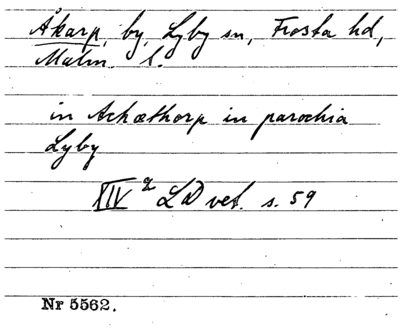 Åkarp, by, Lyby sn, Frosta hd,
Malm. l.
in Achæthorp in parochia
Lyby
XIV 2 LD vet. s. 59
Nr 5562.